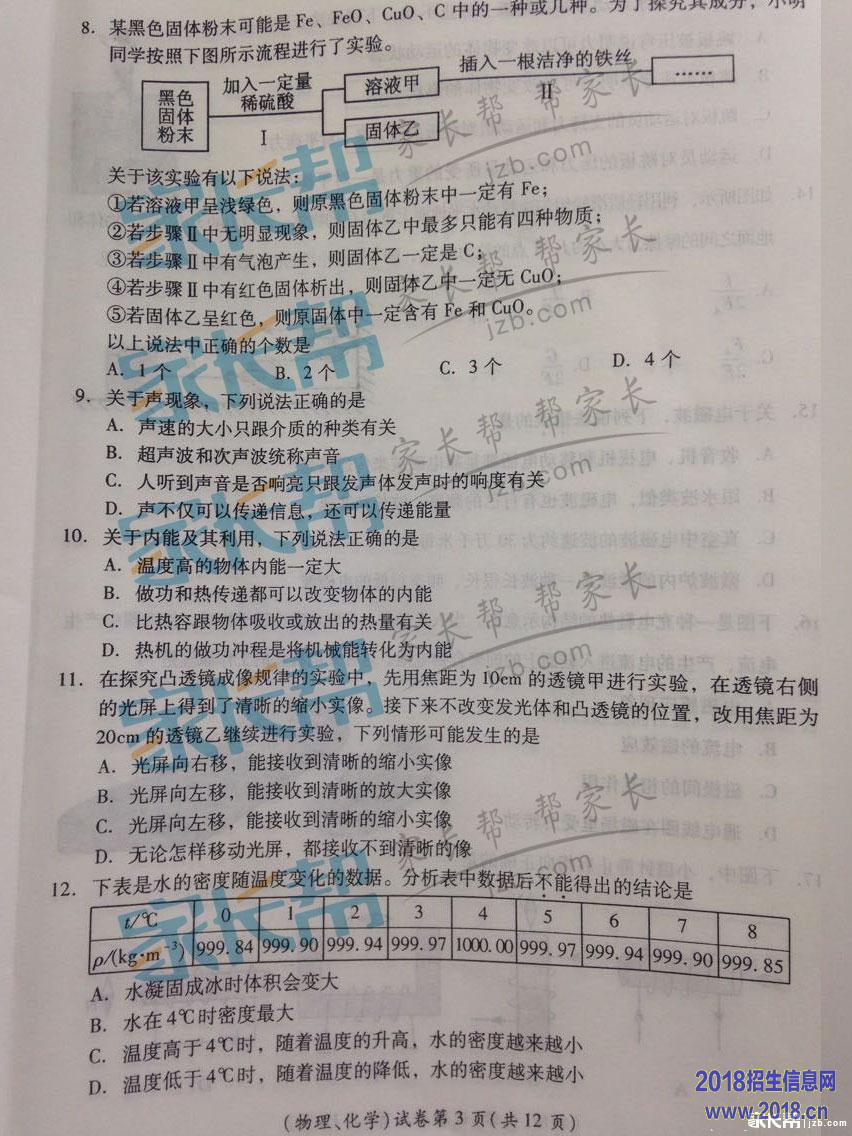 8. 某黑色固体粉末可能是 Fe、FeO、CuO、C 中的一种或几种。为了探究其成分，小明
同学按照下图所示流程进行了实验。
黑色
固体
粉末
加入一定量
稀硫酸
Ⅰ
溶液甲
固体乙
插入一根洁净的铁丝
Ⅱ
……
关于该实验有以下说法：
①若溶液甲呈浅绿色，则原黑色固体粉末中一定有 Fe；
②若步骤Ⅱ中无明显现象，则固体乙中最多只能有四种物质；
③若步骤Ⅱ中有气泡产生，则固体乙一定是 C；
④若步骤Ⅱ中有红色固体析出，则固体乙中一定无 CuO；
⑤若固体乙呈红色，则原固体中一定含有 Fe 和 CuO。
以上说法中正确的个数是
A. 1 个 B. 2 个 C. 3 个 D. 4 个
9. 关于声现象，下列说法正确的是
A. 声速的大小只跟介质的种类有关
B. 超声波和次声波统称声音
C. 人听到声音是否响亮只跟发声体发声时的响度有关
D. 声不仅可以传递信息，还可以传递能量
10. 关于内能及其利用，下列说法正确的是
A. 温度高的物体内能一定大
B. 做功和热传递都可以改变物体的内能
C. 比热容跟物体吸收或放出的热量有关
D. 热机的做功冲程是将机械能转化为内能
11. 在探究凸透镜成像规律的实验中，先用焦距为 10cm 的透镜甲进行实验，在透镜右侧
的光屏上得到了清晰的缩小实像。接下来不改变发光体和凸透镜的位置，改用焦距为
20cm 的透镜乙继续进行实验，下列情形可能发生的是
A. 光屏向右移，能接收到清晰的缩小实像
B. 光屏向左移，能接收到清晰的放大实像
C. 光屏向左移，能接收到清晰的缩小实像
D. 无论怎样移动光屏，都接收不到清晰的像
12. 下表是水的密度随温度变化的数据。分析表中数据后不能得出的结论是
t/℃ 0 1 2 3 4 5 6 7 8
ρ/(kg·m⁻³) 999.84 999.90 999.94 999.97 1000.00 999.97 999.94 999.90 999.85
A. 水凝固成冰时体积会变大
B. 水在 4℃时密度最大
C. 温度高于 4℃时，随着温度的升高，水的密度越来越小
D. 温度低于 4℃时，随着温度的降低，水的密度越来越小
(物理、化学)试卷第 3 页(共 12 页)
家长帮
家长帮 帮家长
jzb.com
家长帮 帮家长
jzb.com
家长帮
家长帮 帮家长
jzb.com
家长帮
家长帮 帮家长
jzb.com
家长帮
家长帮 帮家长
jzb.com
家长帮
2018招生信息网
www.2018.cn
家长帮|jzb.com